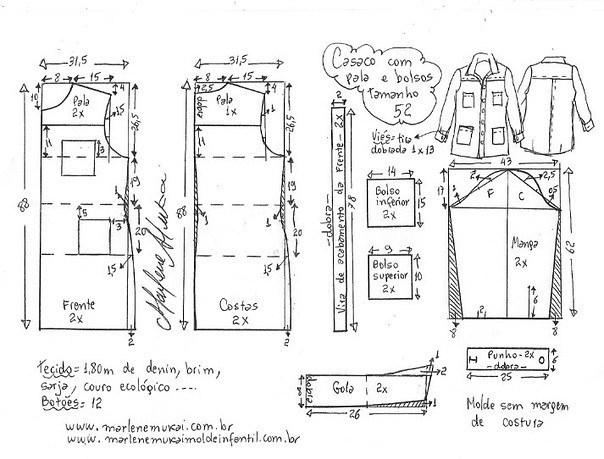 31,5
8
15
4
10
Pala
2x
15
26,5
11
3
1
19
88
5
3
20
1,5
Frente
2x
2
Marlene Mukai
31,5
8
15
4
2,5
dobra
Pala
1x
1
26,5
11
19
88
1
1
20
15
Costas
2x
2
Casaco com
pala e bolsos
tamanho
52
2
Vira de acabamento da Frente - 2x
-dobra-
78
Viés = tira
dobrada 1x13
14
Bolso
inferior
2x
15
9
Bolso
superior
2x
10
43
17
1
F
C
2,5
Manga
2x
62
6
2
8
8
Punho - 2x
-dobra-
6
25
dobra
8
Gola
2x
1
2
1
26
Tecido = 1,80m de denin, brim,
sarja, couro ecológico ....
Botões = 12
www.marlenemukai.com.br
www.marlenemukaimoldeinfantil.com.br
Molde sem margem
de costura